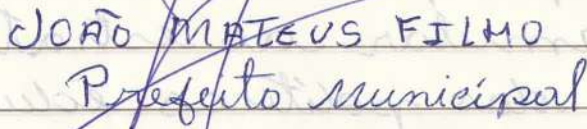 JOÃO MATEUS FILHO
Prefeito Municipal